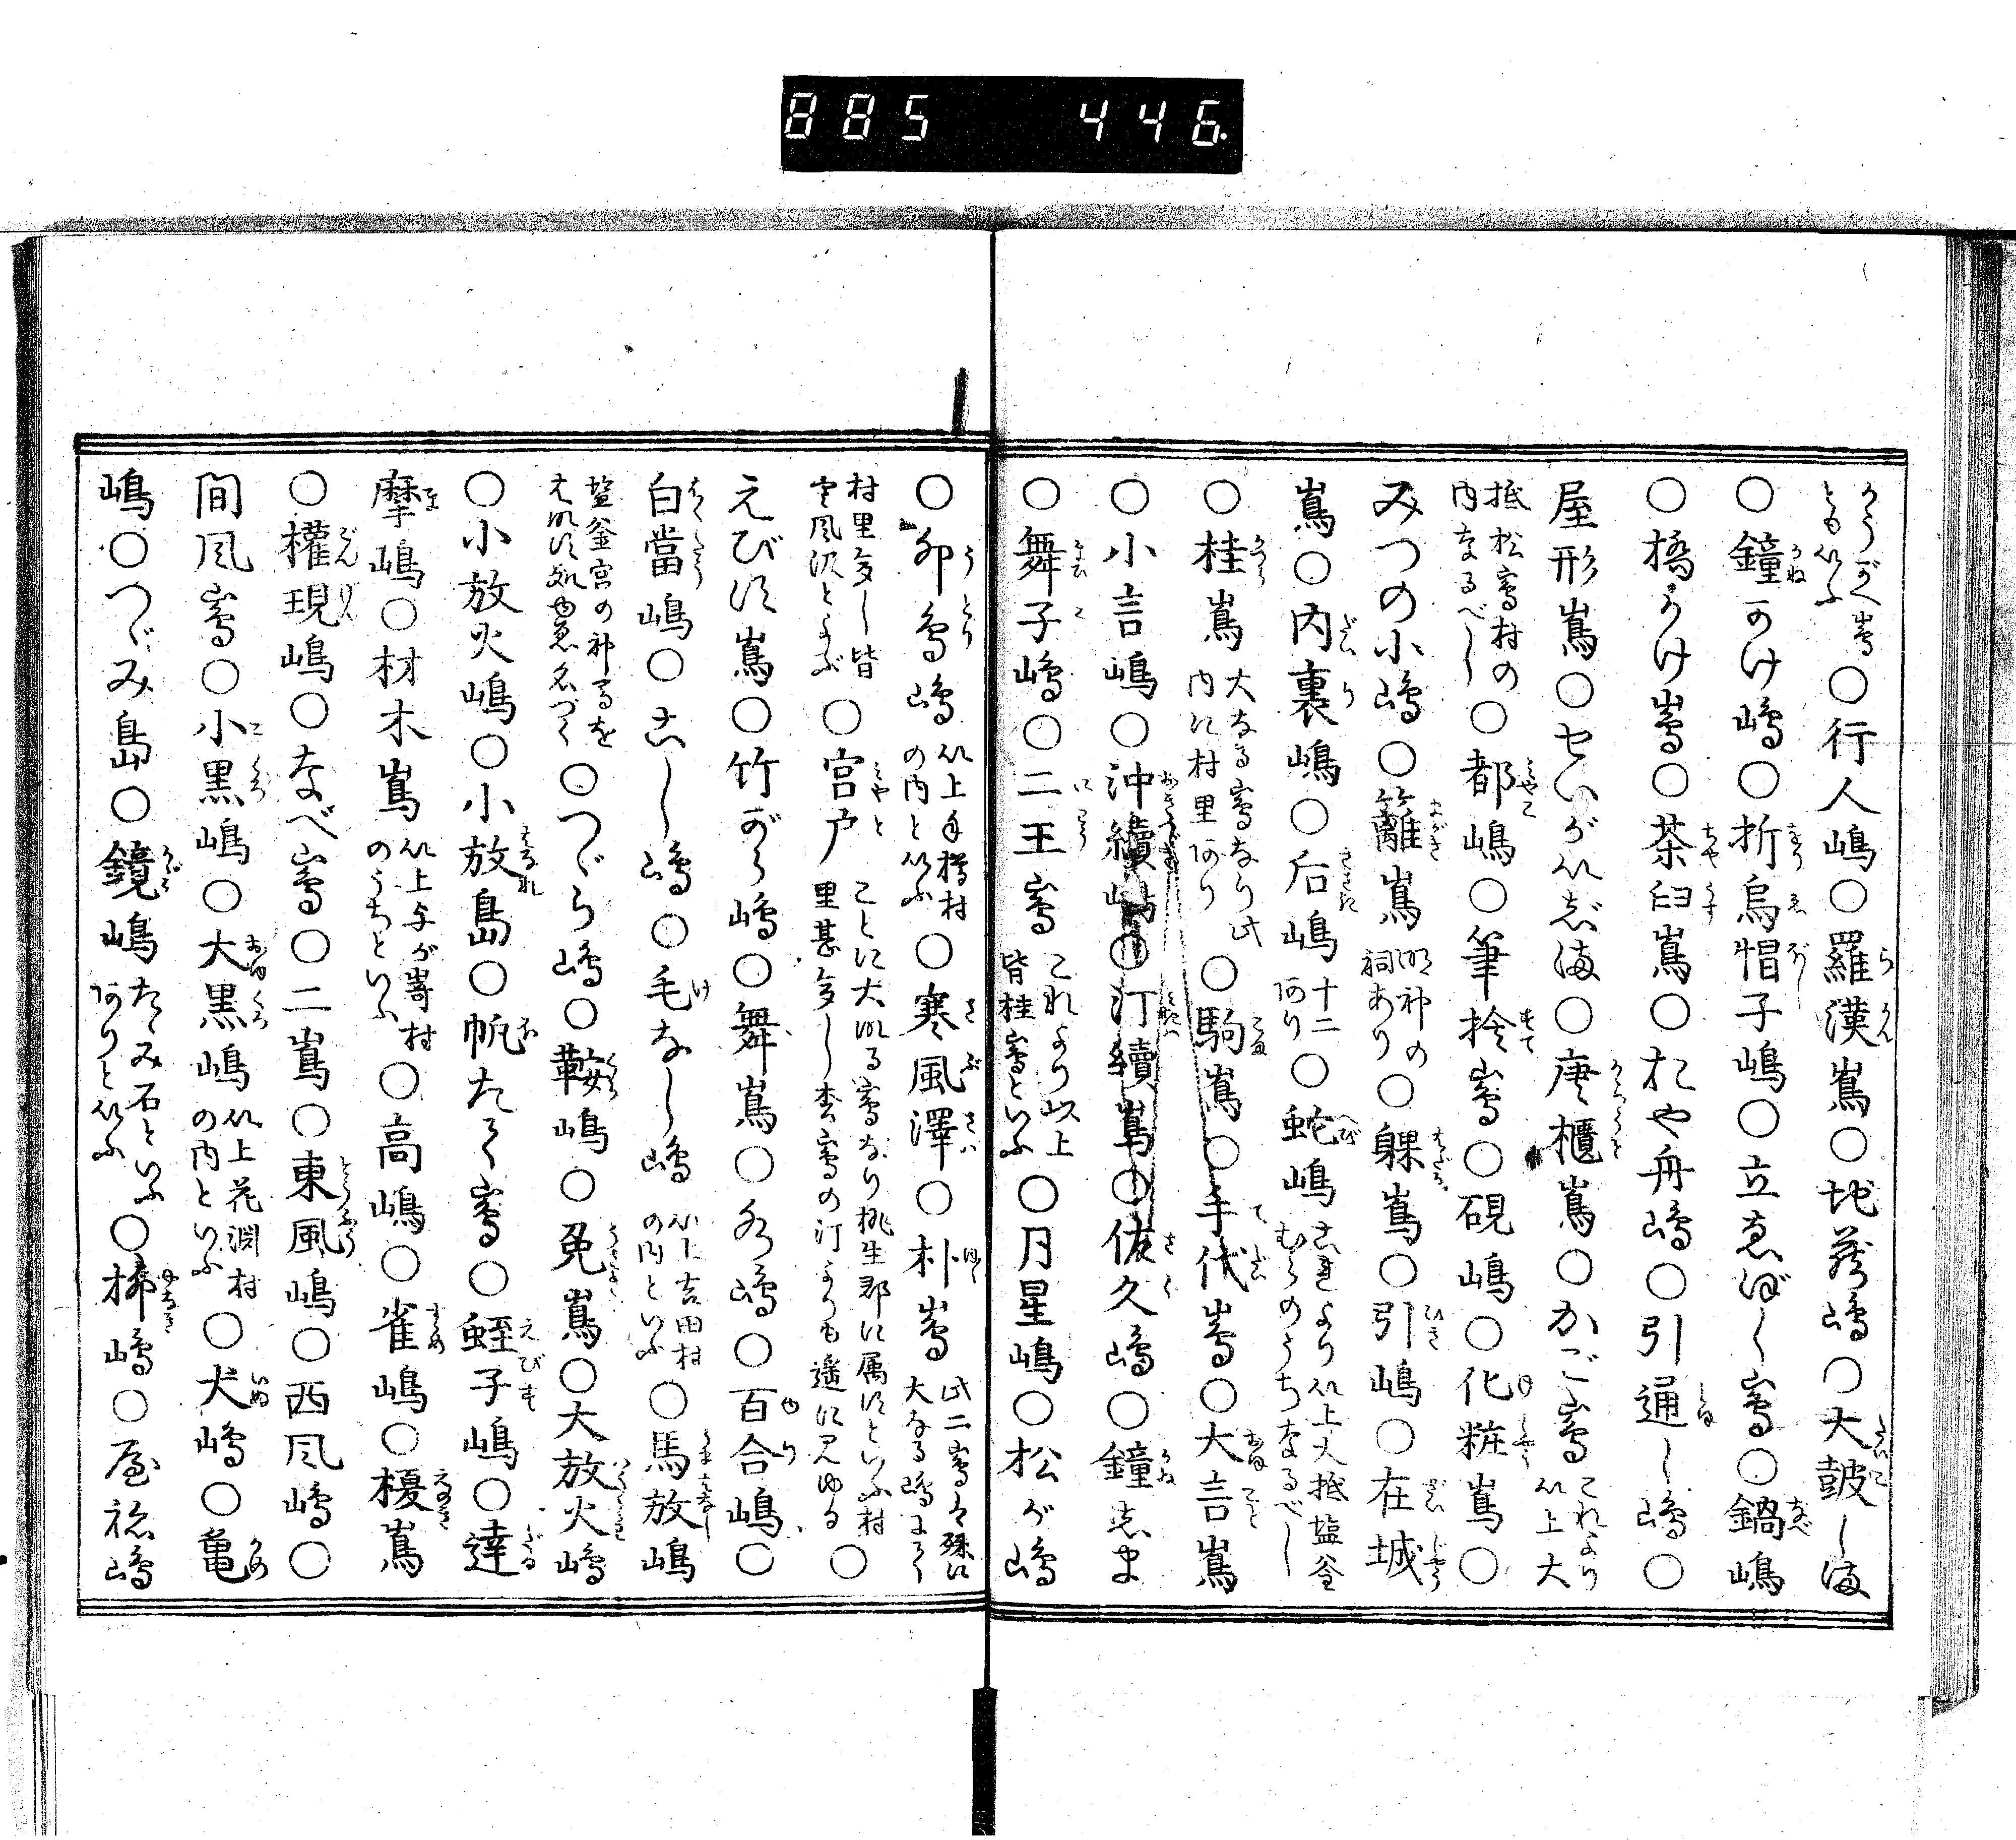 885 446.
かうがく嶌ともいふ○行人嶋○羅漢嶌○地蔵嶋○大皷しま
○鐘かけ嶋○折烏帽子嶋○立ゑぼし嶌○鍋嶋
○橋かけ嶌○茶臼嶌○おや舟嶋○引通し嶋○
屋形嶌○せいがいじま○唐櫃嶌○かご嶌 これより以上大
抵松嶌村の内なるべし○都嶋○筆捨嶌○硯嶋○化粧嶌○
みつの小嶋○籬嶌 明神の祠あり○躶嶌○引嶋○在城
嶌○内裏嶋○后嶋 十二あり○蛇嶋 これより以上大抵塩釜むらのうちなるべし
○桂嶌 大なる嶌なり此内に村里あり○駒嶌○手代嶌○大言嶌
○小言嶋○沖續嶋○汀續嶌○佐久嶋○鐘しま
○舞子嶋○二王嶌 これより以上皆桂嶌といふ○月星嶋○松が嶋
○卯鳥嶋 以上手樽村の内といふ○寒風澤○朴嶌 此二嶌は殊に大なる嶋にて
村里多し皆寒風沢とよぶ○宮戸 ことに大成る嶌なり桃生郡に属すといふ村里甚多し松嶌の汀よりも遥に見ゆる○
えびす嶌○竹がら嶋○舞嶌○水嶋○百合嶋○
白當嶋○こし嶋○毛なし嶋 以上吉田村の内といふ○馬放嶋
塩釜宮の神馬をはなす処ゆゑ名づく○つゞら嶋○鞍嶋○兔嶌○大放火嶋
○小放火嶋○小放島○帆たて嶌○蛭子嶋○達
摩嶋○材木嶌 以上与が嵜村のうちといふ○高嶋○雀嶋○榎嶌
○權現嶋○なべ嶌○二嶌○東風嶋○西風嶋○
間風嶌○小黒嶋○大黒嶋 以上花淵村の内といふ○犬嶋○亀
嶋○つゞみ島○鏡嶋 たゝみ石といふありといふ○柿嶋○屋祢嶋